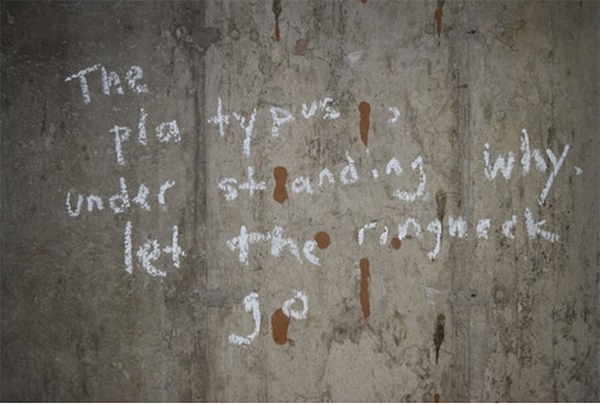 The
platypus is
understanding why.
let the ringneck
go